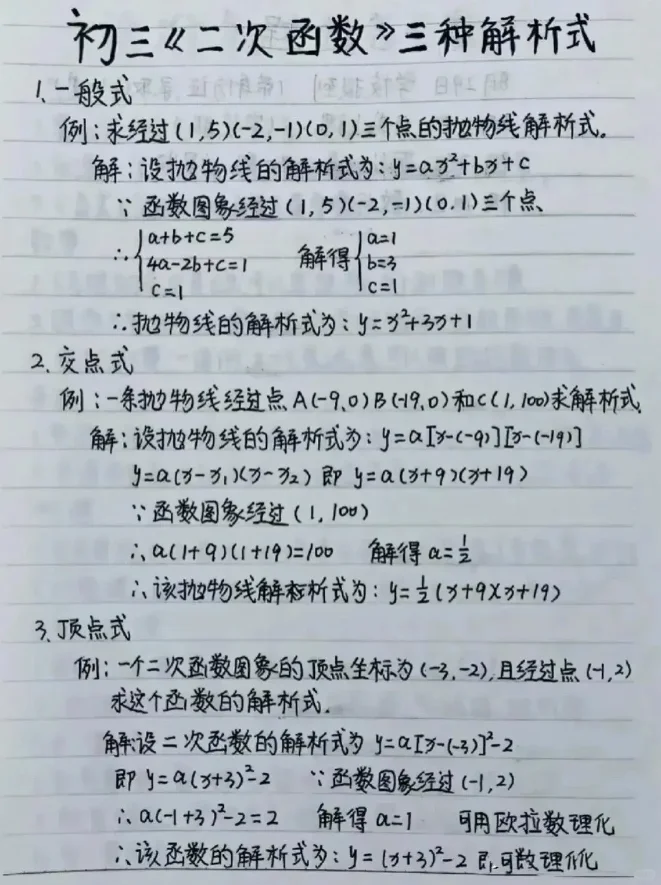 初三《二次函数》三种解析式
1.一般式
例:求经过(1,5)(-2,-1)(0,1)三个点的抛物线解析式.
解:设抛物线的解析式为:y=ax²+bx+c
∵ 函数图象经过(1,5)(-2,-1)(0.1)三个点、
∴{a+b+c=5 解得{a=1
4a-2b+c=1 b=3
c=1 c=1
∴抛物线的解析式为:y=x²+3x+1
2.交点式
例:一条抛物线经过点A(-9,0)B(-19,0)和C(1,100)求解析式.
解:设抛物线的解析式为:y=a[x-(-9)][x-(-19)]
y=a(x-x₁)(x-x₂) 即 y=a(x+9)(x+19)
∵函数图象经过(1,100)
∴a(1+9)(1+19)=100 解得a=½
∴该抛物线解析式为:y=½(x+9)(x+19)
3.顶点式
例:一个二次函数图象的顶点坐标为(-3,-2),且经过点(-1,2)
求这个函数的解析式.
解:设二次函数的解析式为y=a[x-(-3)]²-2
即y=a(x+3)²-2 ∵函数图象经过(-1,2)
∴a(-1+3)²-2=2 解得a=1 可用欧拉数理化
∴该函数的解析式为:y=(x+3)²-2 即可数理化